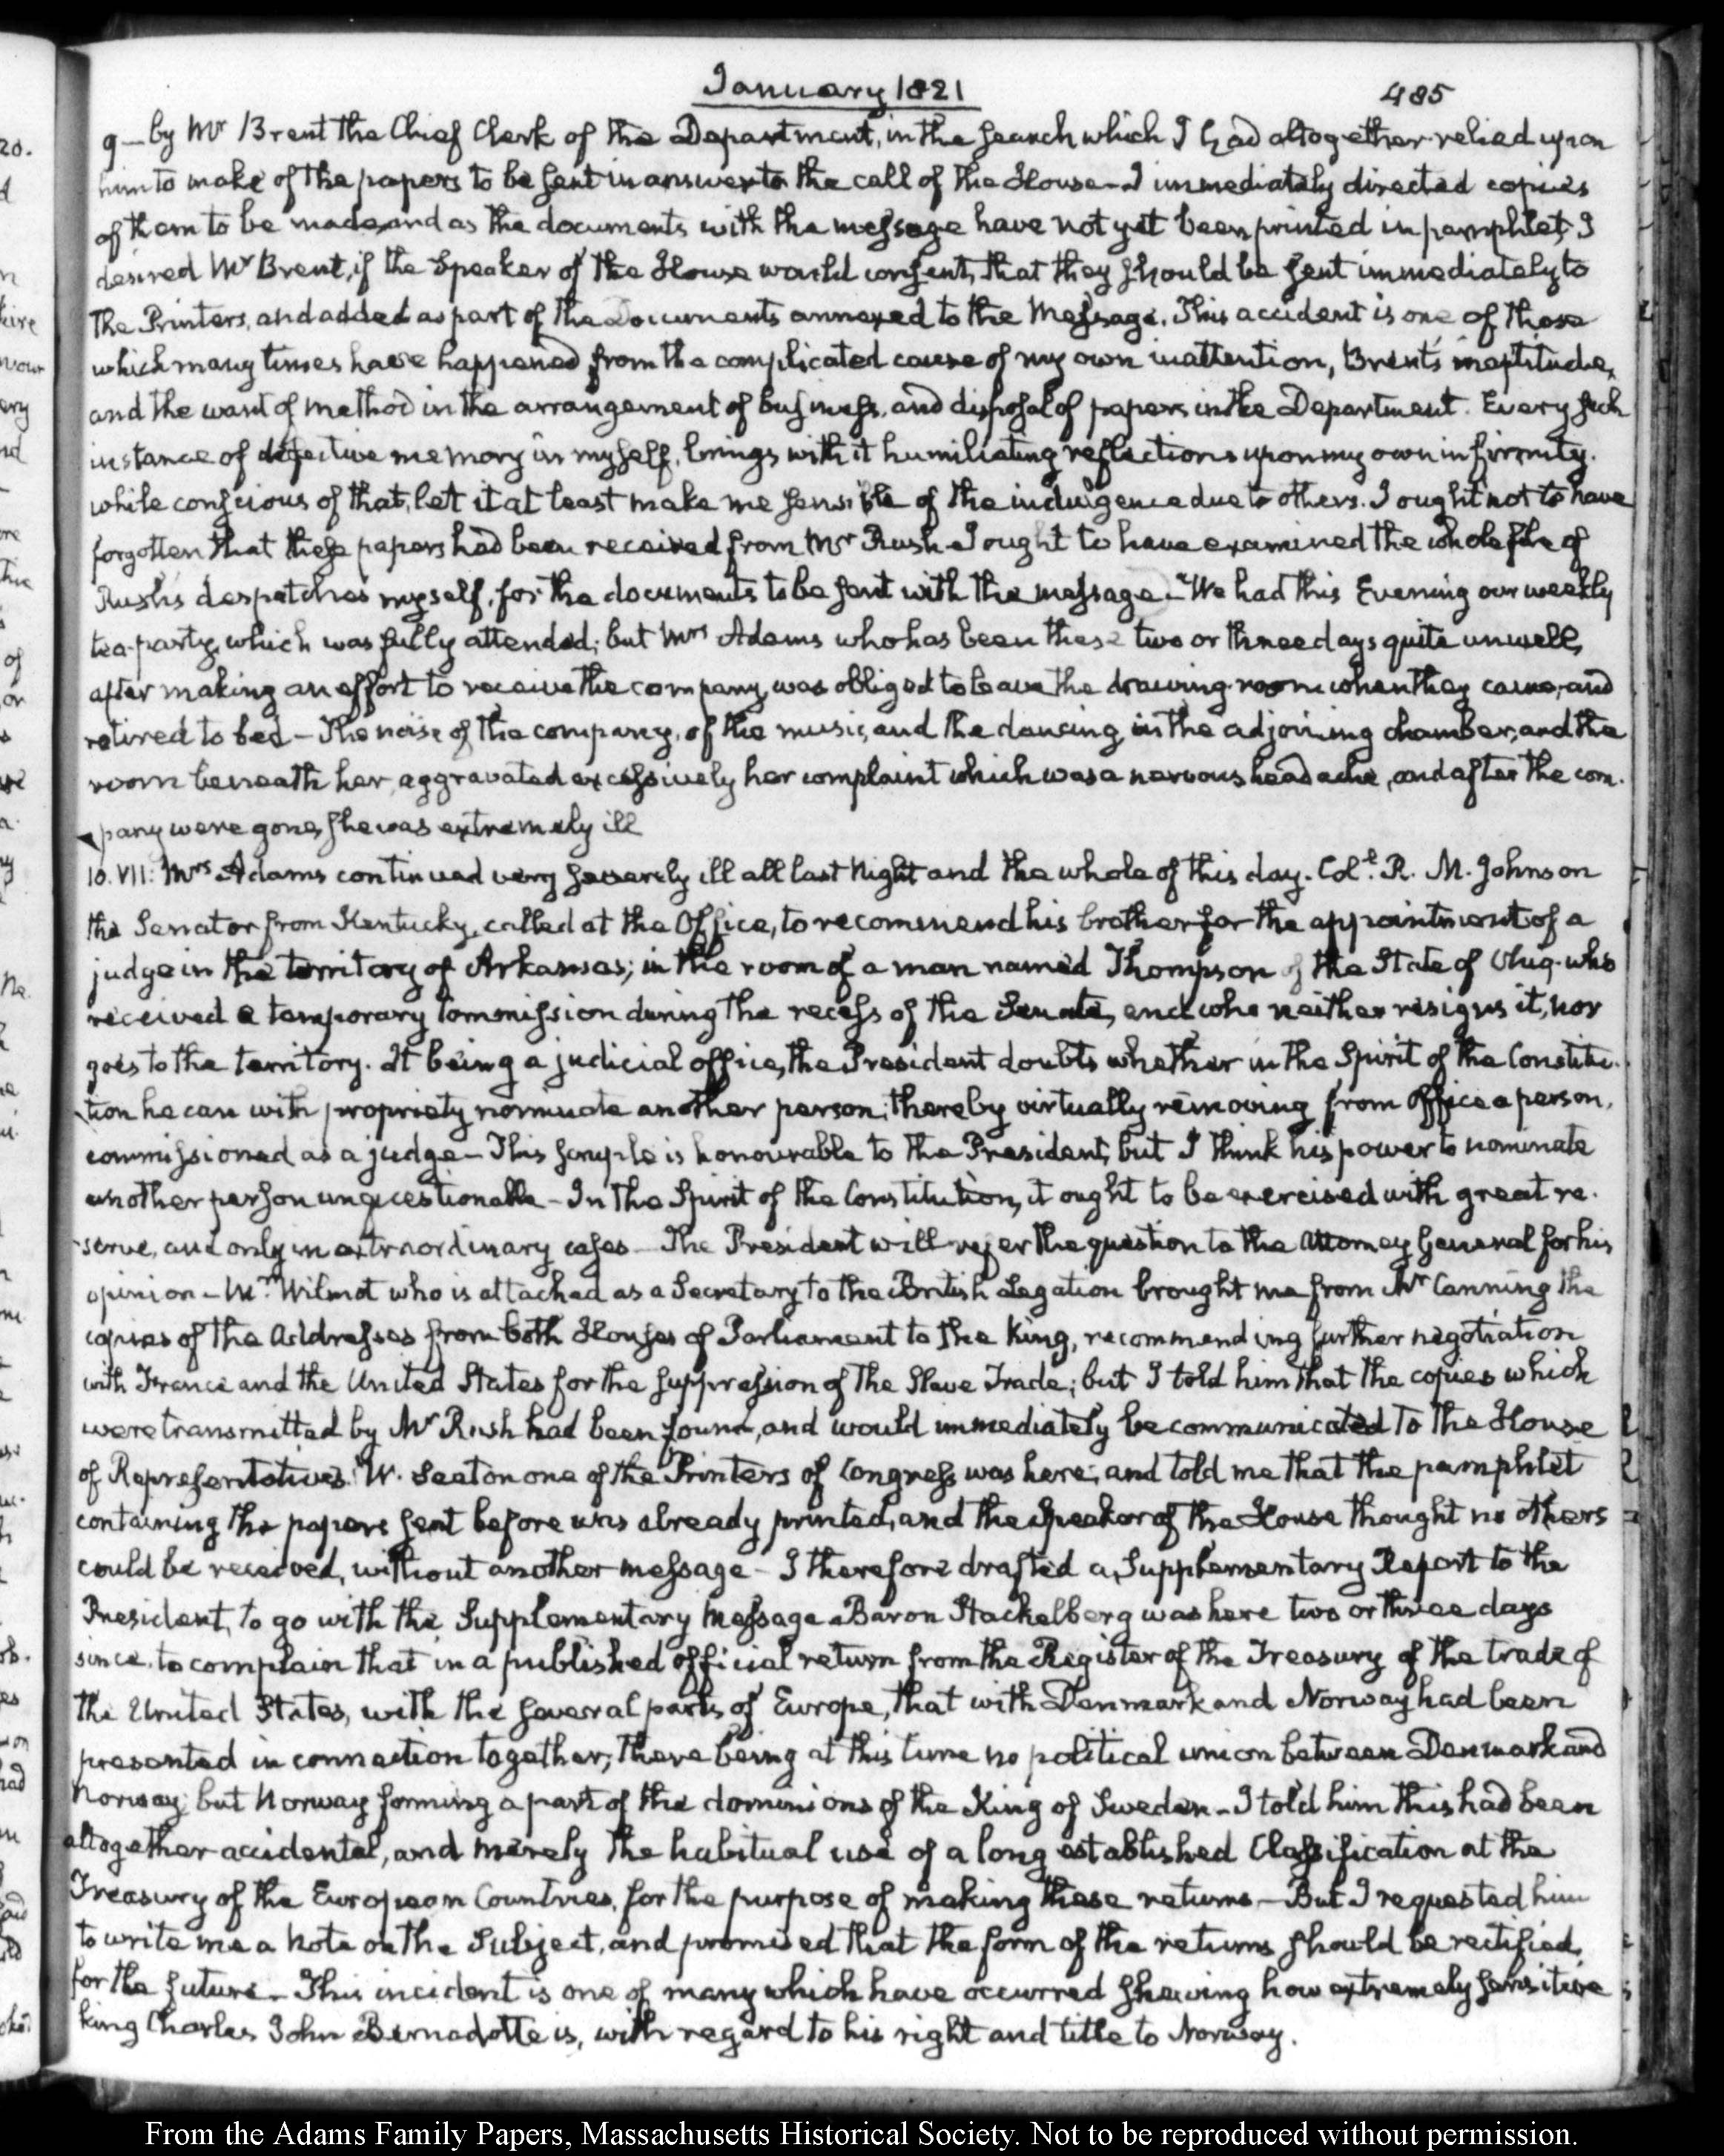 January 1821
485
9 — by Mr Brent the Chief Clerk of the Department, in the search which I had altogether relied upon
him to make of the papers to be sent in answer to the call of the House — I immediately directed copies
of them to be made, and as the documents with the message have not yet been printed in pamphlet, I
desired Mr Brent, if the Speaker of the House would consent, that they should be sent immediately to
the Printers, and added as part of the Documents annexed to the Message. This accident is one of those
which many times have happened from the complicated cause of my own inattention, Brent's ineptitude,
and the want of method in the arrangement of business, and disposal of papers in the Department. Every such
instance of defective memory in myself, brings with it humiliating reflections upon my own infirmity.
while conscious of that, let it at least make me sensible of the indulgence due to others. I ought not to have
forgotten that these papers had been received from Mr Rush — I ought to have examined the whole file of
Rush's despatches myself, for the documents to be sent with the message — We had this Evening our weekly
tea-party, which was fully attended; but Mrs Adams who has been these two or three days quite unwell,
after making an effort to receive the company, was obliged to leave the drawing-room when they came, and
retired to bed — The noise of the company, of the music, and the dancing in the adjoining chamber, and the
room beneath her, aggravated excessively her complaint which was a nervous head ache, and after the com-
pany were gone, she was extremely ill
10. VII: Mrs Adams continued very severely ill all last Night and the whole of this day. Coll. R. M. Johnson
the Senator from Kentucky, called at the Office, to recommend his brother for the appointment of a
judge in the territory of Arkansas; in the room of a man named Thompson of the State of who
received a temporary Commission during the recess of the Senate, and who neither resigns it, nor
goes to the territory. It being a judicial office, the President doubts whether in the Spirit of the Constitu-
tion he can with propriety nominate another person; thereby virtually removing from Office a person,
commissioned as a judge — This scruple is honourable to the President, but I think his power to nominate
another person unquestionable — In the Spirit of the Constitution, it ought to be exercised with great re-
serve, and only in extraordinary cases — The President will refer the question to the Attorney General for his
opinion — Mr. Wilmot who is attached as a Secretary to the British Legation brought me from Mr Canning the
copies of the Addresses from both Houses of Parliament to the King, recommending further negotiation
with France and the United States for the suppression of the Slave Trade; but I told him that the copies which
were transmitted by Mr Rush had been found, and would immediately be communicated to the House
of Representatives. W. Seaton one of the Printers of Congress was here; and told me that the pamphlet
containing the papers sent before was already printed, and the Speaker of the House thought no others
could be received, without another message — I therefore drafted a Supplementary Report to the
President, to go with the Supplementary Message — Baron Stackelberg was here two or three days
since, to complain that in a published official return from the Register of the Treasury of the trade of
the United States, with the several parts of Europe, that with Denmark and Norway had been
presented in connection together; there being at this time no political union between Denmark and
Norway; but Norway forming a part of the dominions of the King of Sweden — I told him this had been
altogether accidental, and merely the habitual use of a long established Classification at the
Treasury of the European Countries, for the purpose of making these returns — But I requested him
to write me a Note on the Subject, and promised that the form of the returns should be rectified
for the future — This incident is one of many which have occurred shewing how extremely sensitive
king Charles John Bernadotte is, with regard to his right and title to Norway.
From the Adams Family Papers, Massachusetts Historical Society. Not to be reproduced without permission.